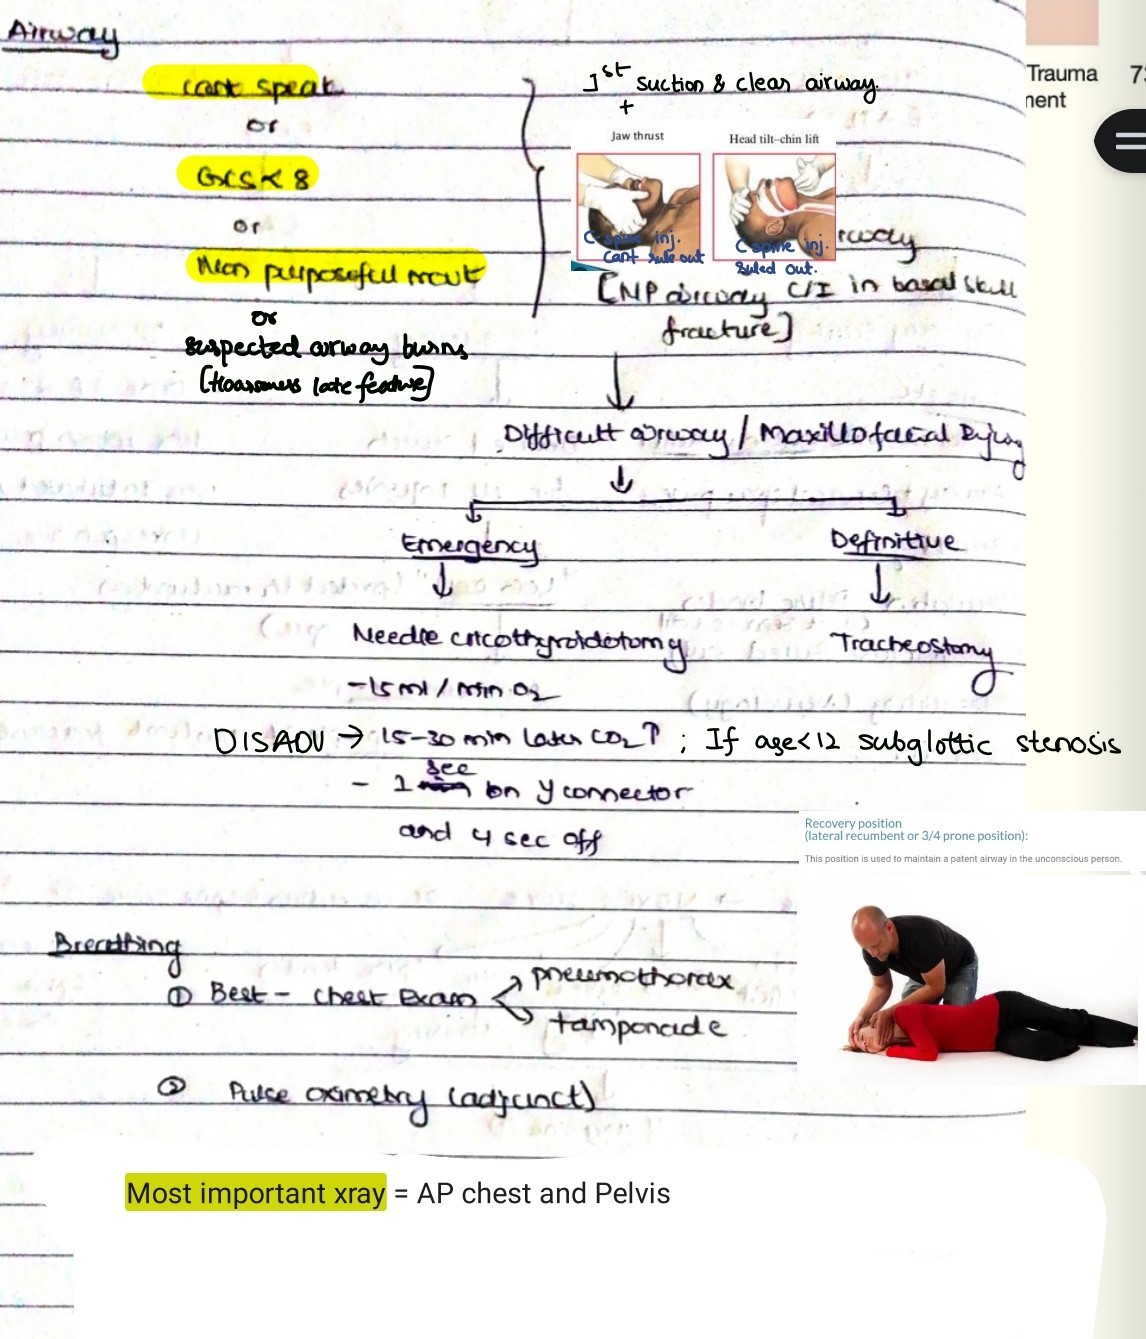 Airway
cant speak
or
GCS < 8
or
Non purposeful movt
or
suspected airway burns
[Hoarsness late feature]
1st suction & clear airway.
+
Jaw thrust
Head tilt–chin lift
C-spine inj.
Cant rule out
C spine inj.
ruled out.
rway
[NP airway C/I in basal skull
fracture]
Trauma 73
nent
Difficult airway / Maxillofacial Injury
Emergency
Definitive
Needle cricothyroidotomy
Tracheostomy
- 15 ml / min O2
DISADV → 15-30 min later CO2 ↑ ; If age<12 subglottic stenosis
- 1 sec on y connector
and 4 sec off
Recovery position
(lateral recumbent or 3/4 prone position):
This position is used to maintain a patent airway in the unconscious person.
Breathing
① Best - Chest Exam
pneumothorax
tamponade
② Pulse oximetry (adjunct)
Most important xray = AP chest and Pelvis